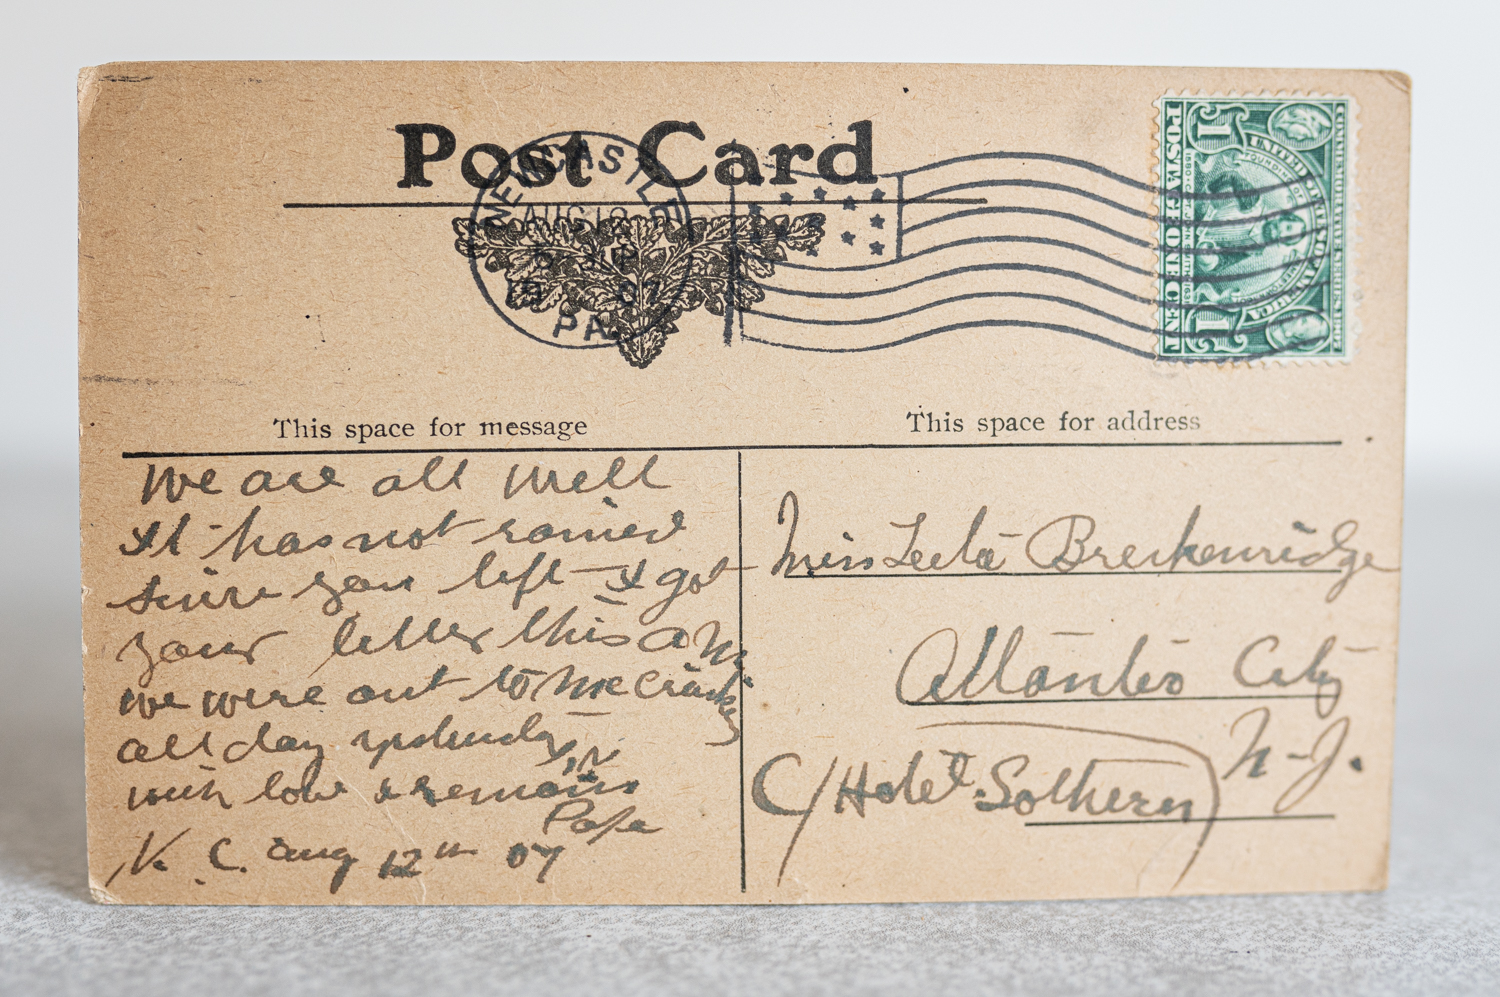 Post Card
NEWCASTLE
AUG 12
07
PA.
POSTAGE ONE CENT
1
1
This space for message
This space for address
We are all well
It has not rained
since you left – I got
your letter this AM
we were out to McCrackeys
all day yesterday
with love & remain
Papa
N. C. Aug 12th 07
Miss Leeta Breckenridge
Atlantic City
N-J.
C/ Hotel Sothern